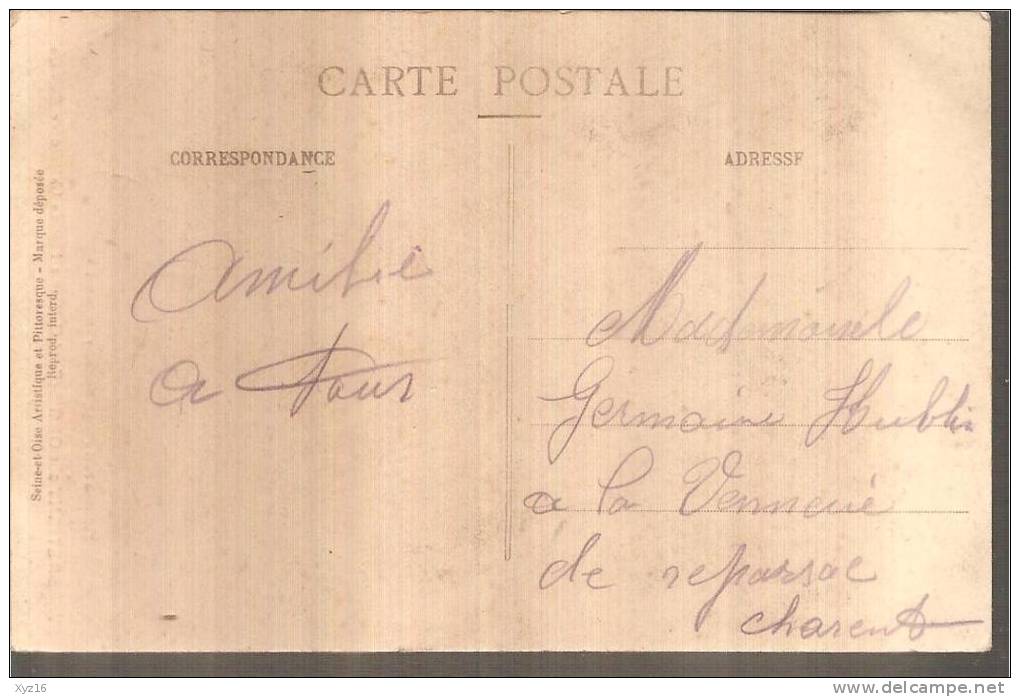 CARTE POSTALE
CORRESPONDANCE
ADRESSE
Seine-et-Oise Artistique et Pittoresque - Marque déposée
Reprod. interd.
Amitié
a tous
Mademoiselle
Germaine Hublin
a la
de repassac
charent
Xyz16
www.delcampe.net